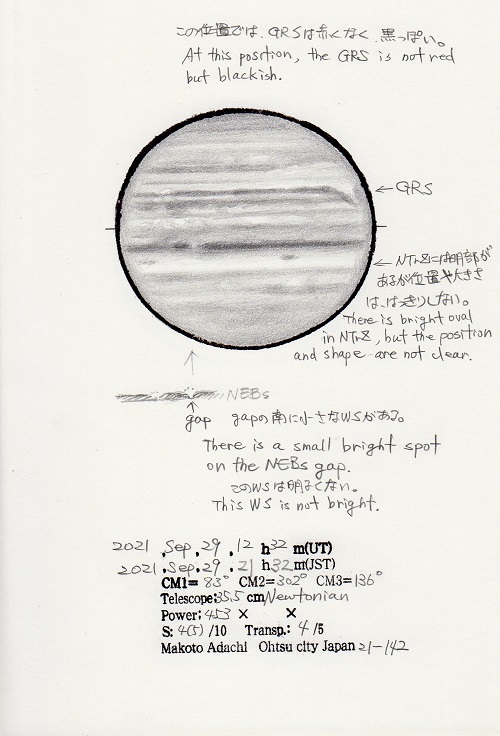 この位置では、GRSは赤くなく、黒っぽい。
At this position, the GRS is not red
but blackish.
←GRS
←NTrZには明部が
あるが位置や大きさ
は、はっきりしない。
There is bright oval
in NTrZ, but the position
and shape are not clear.
NEBs
gap gapの南に小さなWSがある。
There is a small bright spot
on the NEBs gap.
このWSは明るくない。
This WS is not bright.
2021 ,Sep,29 ,12 h32 m(UT)
2021 ,Sep,29 ,21 h32 m(JST)
CM1= 83° CM2=302° CM3=136°
Telescope:35.5 cm Newtonian
Power; 453 × ×
S: 4(5) /10 Transp.: 4 /5
Makoto Adachi Ohtsu city Japan 21-142